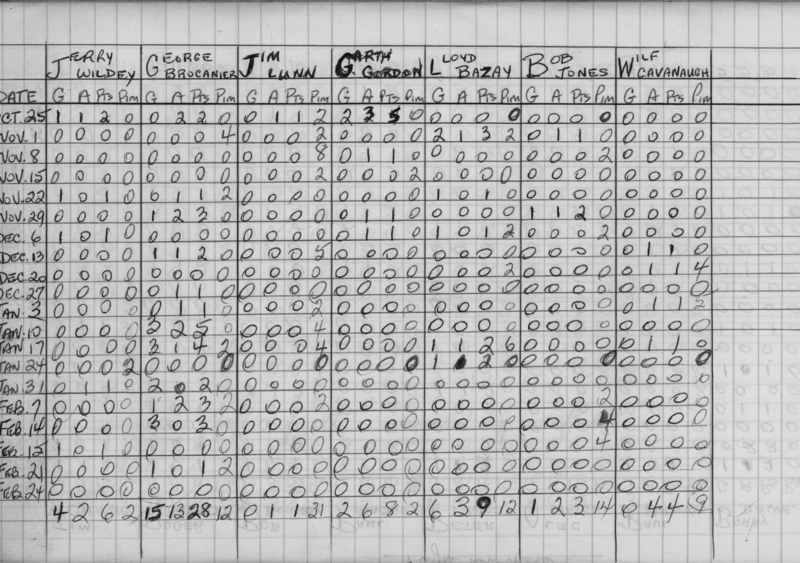 JERRY WILDEY GEORGE BROCANIER JIM LUNN GARTH GORDON LLOYD BAZAY BOB JONES WILF CAVANAUGH
DATE G A Pts Pim G A Pts Pim G A Pts Pim G A Pts Pim G A Pts Pim G A Pts Pim G A Pts Pim
OCT. 25 1 1 2 0 0 2 2 0 0 1 1 2 2 3 5 0 0 0 0 0 0 0 0 0 0 0 0 0
NOV. 1 0 0 0 0 0 0 0 4 0 0 0 2 0 0 0 0 2 1 3 2 0 1 1 0 0 0 0 0
NOV. 8 0 0 0 0 0 0 0 0 0 0 0 8 0 1 1 0 0 0 0 0 0 0 0 2 0 0 0 0
NOV. 15 0 0 0 0 0 0 0 0 0 0 0 2 0 0 0 2 0 0 0 0 0 0 0 0 0 0 0 0
NOV. 22 1 0 1 0 0 1 1 2 0 0 0 0 0 0 0 0 1 0 1 0 0 0 0 0 0 0 0 0
NOV. 29 0 0 0 0 1 2 3 0 0 0 0 0 0 1 1 0 0 0 0 0 1 1 2 0 0 0 0 0
DEC. 6 1 0 1 0 0 0 0 0 0 0 0 0 0 1 1 0 1 0 1 2 0 0 0 2 0 0 0 0
DEC. 13 0 0 0 0 1 1 2 0 0 0 0 5 0 0 0 0 0 0 0 0 0 0 0 0 0 1 1 0
DEC. 20 0 0 0 0 0 0 0 0 0 0 0 0 0 0 0 0 0 0 0 2 0 0 0 0 0 1 1 4
DEC. 27 0 0 0 0 0 1 1 0 0 0 0 0 0 0 0 0 0 0 0 0 0 0 0 0 0 0 0 0
JAN. 3 0 0 0 0 0 1 1 0 0 0 0 2 0 0 0 0 0 0 0 0 0 0 0 0 0 1 1 2
JAN. 10 0 0 0 0 3 2 5 0 0 0 0 4 0 0 0 0 0 0 0 0 0 0 0 0 0 0 0 0
JAN 17 0 0 0 0 3 1 4 2 0 0 0 4 0 0 0 0 1 1 2 6 0 0 0 0 0 1 1 0
JAN 24 0 0 0 2 0 0 0 0 0 0 0 0 0 0 0 0 1 1 2 0 0 0 0 0 0 0 0 0
JAN. 31 0 1 1 0 2 0 2 0 0 0 0 0 0 0 0 0 0 0 0 0 0 0 0 0 0 0 0 0
FEB. 7 0 0 0 0 1 2 3 2 0 0 0 2 0 0 0 0 0 0 0 0 0 0 0 2 0 0 0 0
FEB. 14 0 0 0 0 3 0 3 0 0 0 0 0 0 0 0 0 0 0 0 0 0 0 0 4 0 0 0 0
FEB. 15 1 0 1 0 0 0 0 0 0 0 0 0 0 0 0 0 0 0 0 0 0 0 0 4 0 0 0 0
FEB. 21 0 0 0 0 1 0 1 2 0 0 0 0 0 0 0 0 0 0 0 0 0 0 0 0 0 0 0 0
FEB. 24 0 0 0 0 0 0 0 0 0 0 0 0 0 0 0 0 0 0 0 0 0 0 0 0 0 0 0 0
4 2 6 2 15 13 28 12 0 1 1 31 2 6 8 2 6 3 9 12 1 2 3 14 0 4 4 9